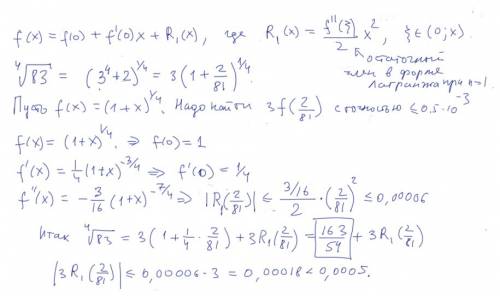 f(x) = f(0) + f'(0)x + R₁(x), где R₁(x) = f''(ξ)/2 x², ξ∈(0;x).
остаточный член в форме Лагранжа при n=1.
⁴√83 = (3⁴+2)^(1/4) = 3(1+2/81)^(1/4).
Пусть f(x) = (1+x)^(1/4). Надо найти 3f(2/81) с точностью ≤0,5·10⁻³
f(x) = (1+x)^(1/4). ⇒ f(0)=1
f'(x) = 1/4(1+x)^(-3/4) ⇒ f'(0) = 1/4
f''(x) = -3/16(1+x)^(-7/4) ⇒ |R₁(2/81)| ≤ (3/16)/2 · (2/81)² ≤ 0,00006
Итак ⁴√83 = 3(1+1/4·2/81) + 3R₁(2/81) = 163/54 + 3R₁(2/81)
|3R₁(2/81)| ≤ 0,00006·3 = 0,00018 < 0,0005.